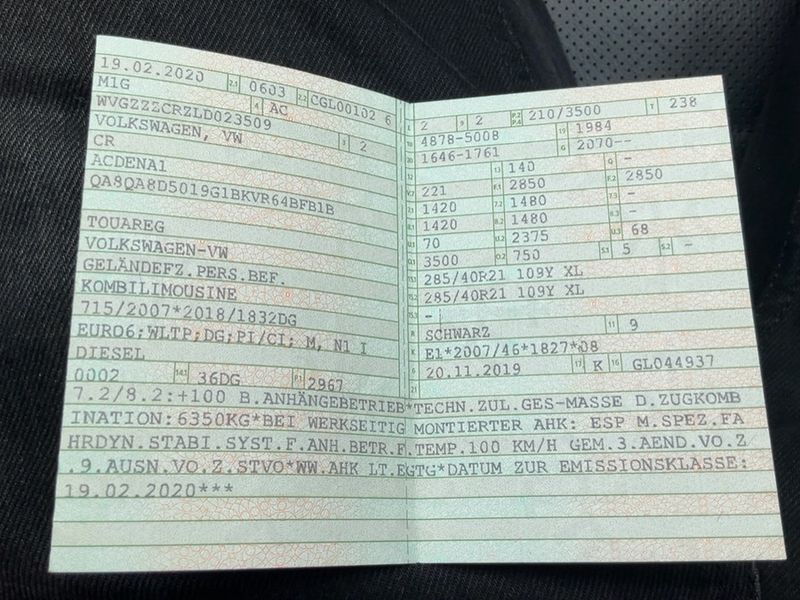 19.02.2020 2.1 0603 2.2 CGL00102 6
M1G 4 AC
WVGZZZCRZLD023509 3 2
VOLKSWAGEN, VW
CR
ACDENA1
QA8QA8D5019G1BKVR64BFB1B
TOUAREG
VOLKSWAGEN-VW
GELÄNDEFZ.PERS.BEF.
KOMBILIMOUSINE
715/2007*2018/1832DG
EURO6;WLTP;DG;PI/CI; M, N1 I
DIESEL
0002 14.1 36DG P.1 2967
L 2 9 2 P.2 P.4 210/3500 T 238
18 4878-5008 19 1984
20 1646-1761 G 2070--
12 - 13 140 Q -
V.7 221 F.1 2850 F.2 2850
7.1 1420 7.2 1480 7.3 -
8.1 1420 8.2 1480 8.3 -
U.1 70 U.2 2375 U.3 68
O.1 3500 O.2 750 S.1 5 S.2 -
15.1 285/40R21 109Y XL
15.2 285/40R21 109Y XL
15.3 -
R SCHWARZ 11 9
K E1*2007/46*1827*08
6 20.11.2019 17 K 16 GL044937
21
7.2/8.2:+100 B.ANHÄNGEBETRIEB*TECHN.ZUL.GES-MASSE D.ZUGKOMB
INATION:6350KG*BEI WERKSEITIG MONTIERTER AHK: ESP M.SPEZ.FA
HRDYN.STABI.SYST.F.ANH.BETR.F.TEMP.100 KM/H GEM.3.AEND.VO.Z
.9.AUSN.VO.Z.STVO*WW.AHK LT.EGTG*DATUM ZUR EMISSIONSKLASSE:
19.02.2020***